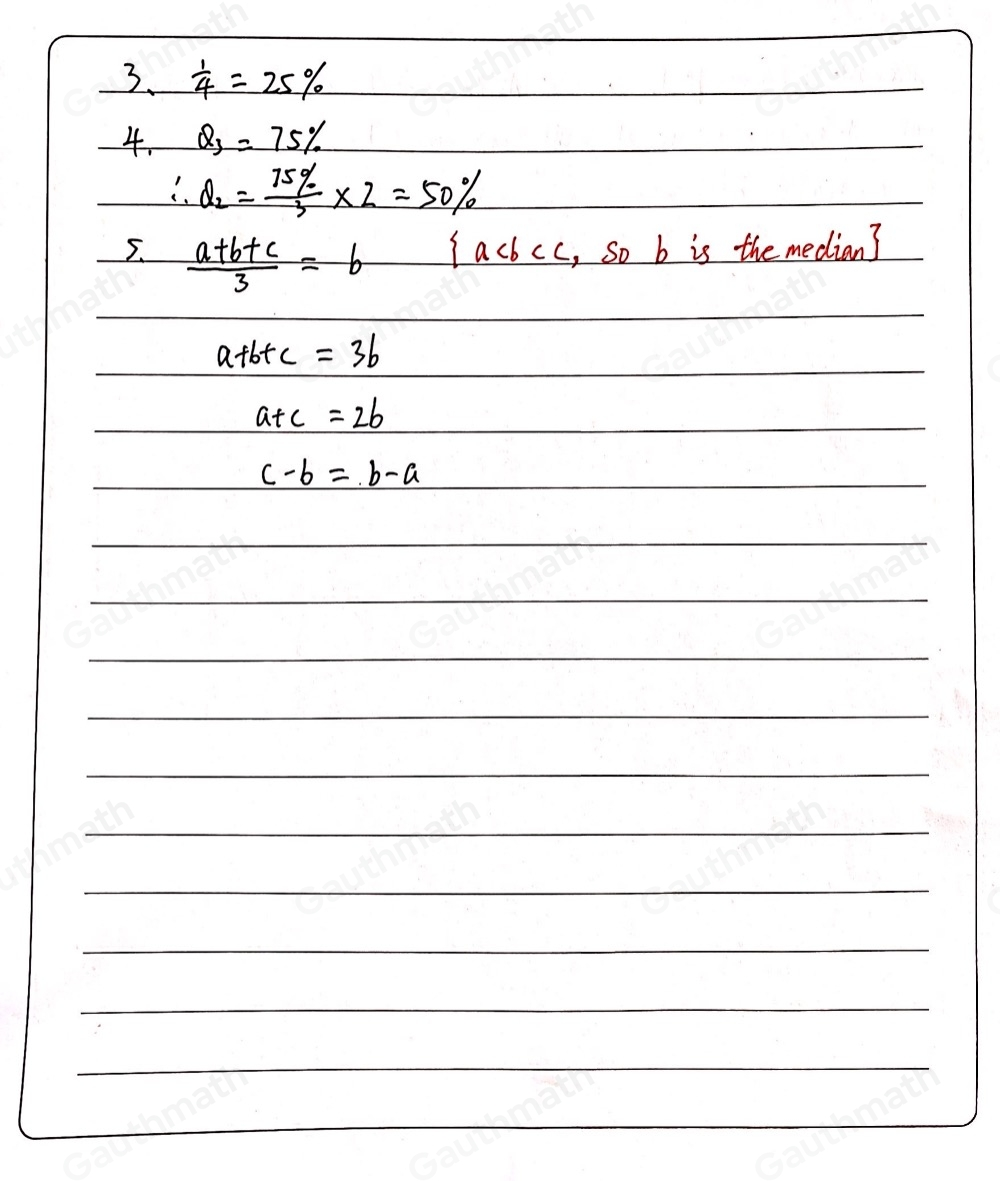 3、 1/4 = 25%
4. Q₃ = 75%
∴ Q₂ = 75%/3 × 2 = 50%
5. (a+b+c)/3 = b {a<b<c, so b is the median}
a+b+c = 3b
a+c = 2b
c-b = b-a
Gauthmath